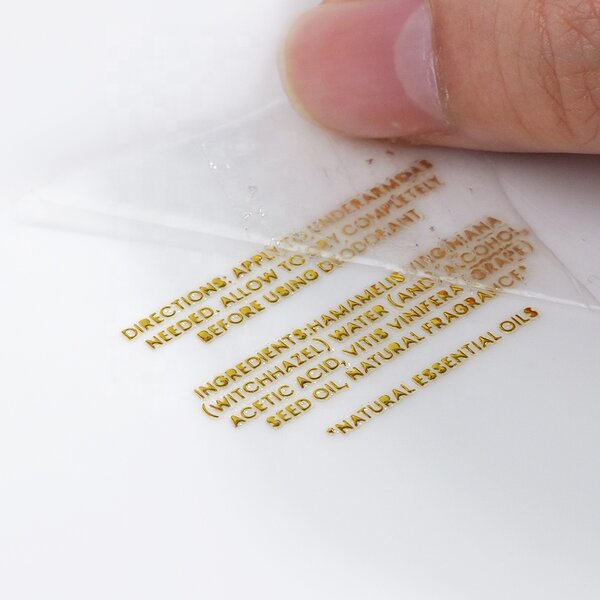 DIRECTIONS: APPLY TO UNDERARM AS
NEEDED. ALLOW TO DRY COMPLETELY
BEFORE USING DEODORANT.
INGREDIENTS:HAMAMELIS VIRGINIANA
(WITCHHAZEL) WATER (AND) ALCOHOL,
ACETIC ACID, VITIS VINIFERA (GRAPE)
SEED OIL, NATURAL FRAGRANCE*
*NATURAL ESSENTIAL OILS